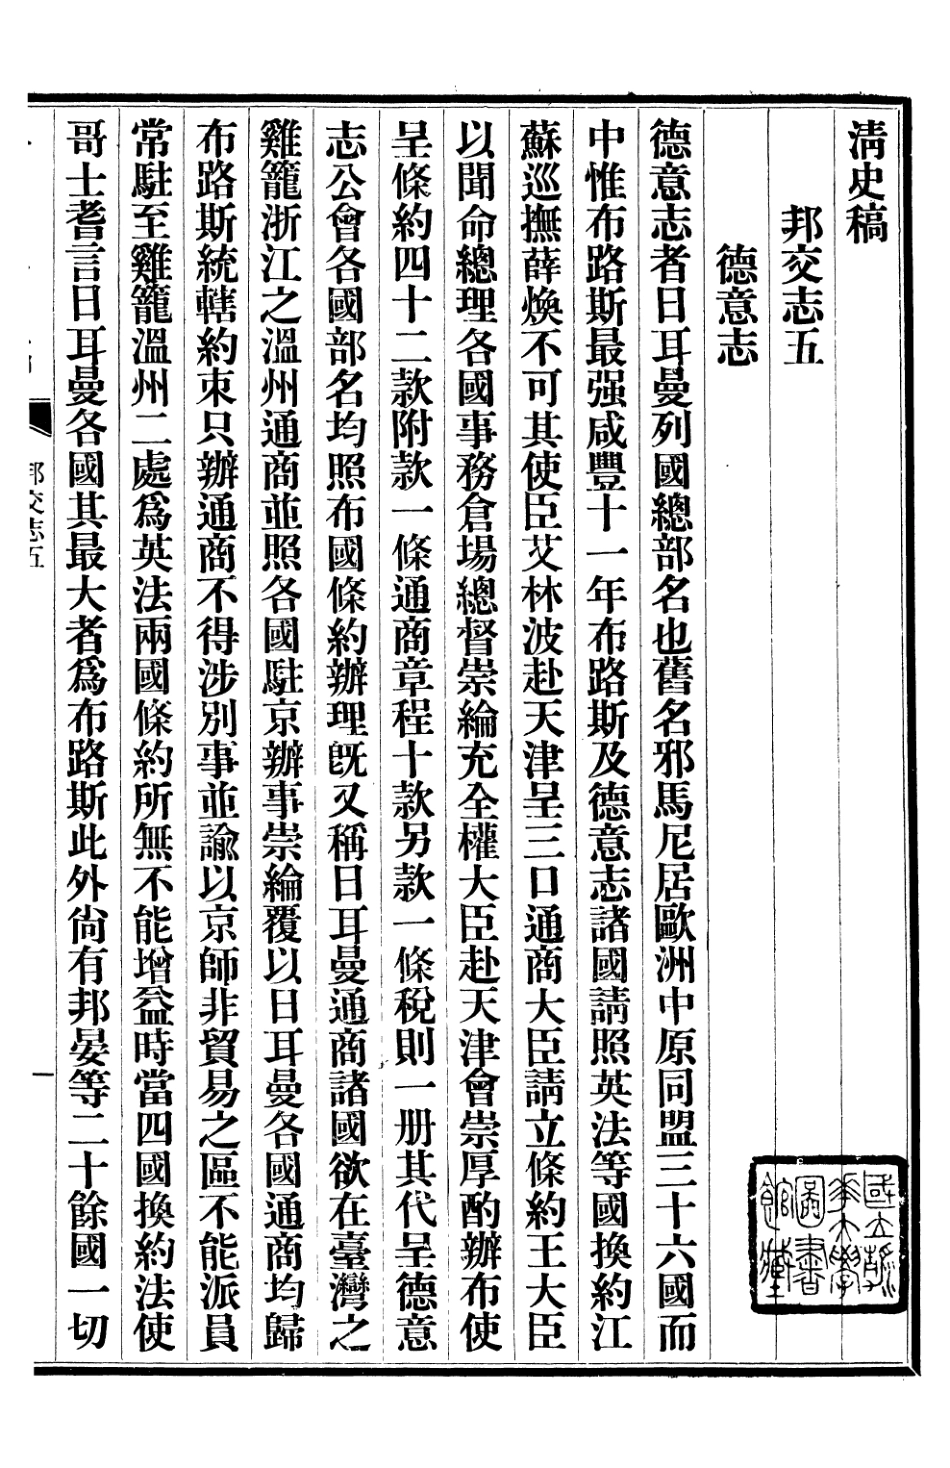 清史稿
邦交志五
德意志
德意志者日耳曼列國總部名也舊名邪馬尼居歐洲中原同盟三十六國而
中惟布路斯最强咸豐十一年布路斯及德意志諸國請照英法等國換約江
蘇巡撫薛煥不可其使臣艾林波赴天津呈三口通商大臣請立條約王大臣
以聞命總理各國事務倉場總督崇綸充全權大臣赴天津會崇厚酌辦布使
呈條約四十二款附款一條通商章程十款另款一條稅則一册其代呈德意
志公會各國部名均照布國條約辦理旣又稱日耳曼通商諸國欲在臺灣之
雞籠浙江之溫州通商並照各國駐京辦事崇綸覆以日耳曼各國通商均歸
布路斯統轄約束只辦通商不得涉別事並諭以京師非貿易之區不能派員
常駐至雞籠溫州二處爲英法兩國條約所無不能增益時當四國換約法使
哥士耆言日耳曼各國其最大者爲布路斯此外尙有邦晏等二十餘國一切
邦交志五
一
國立清
華大學
圖書
館藏